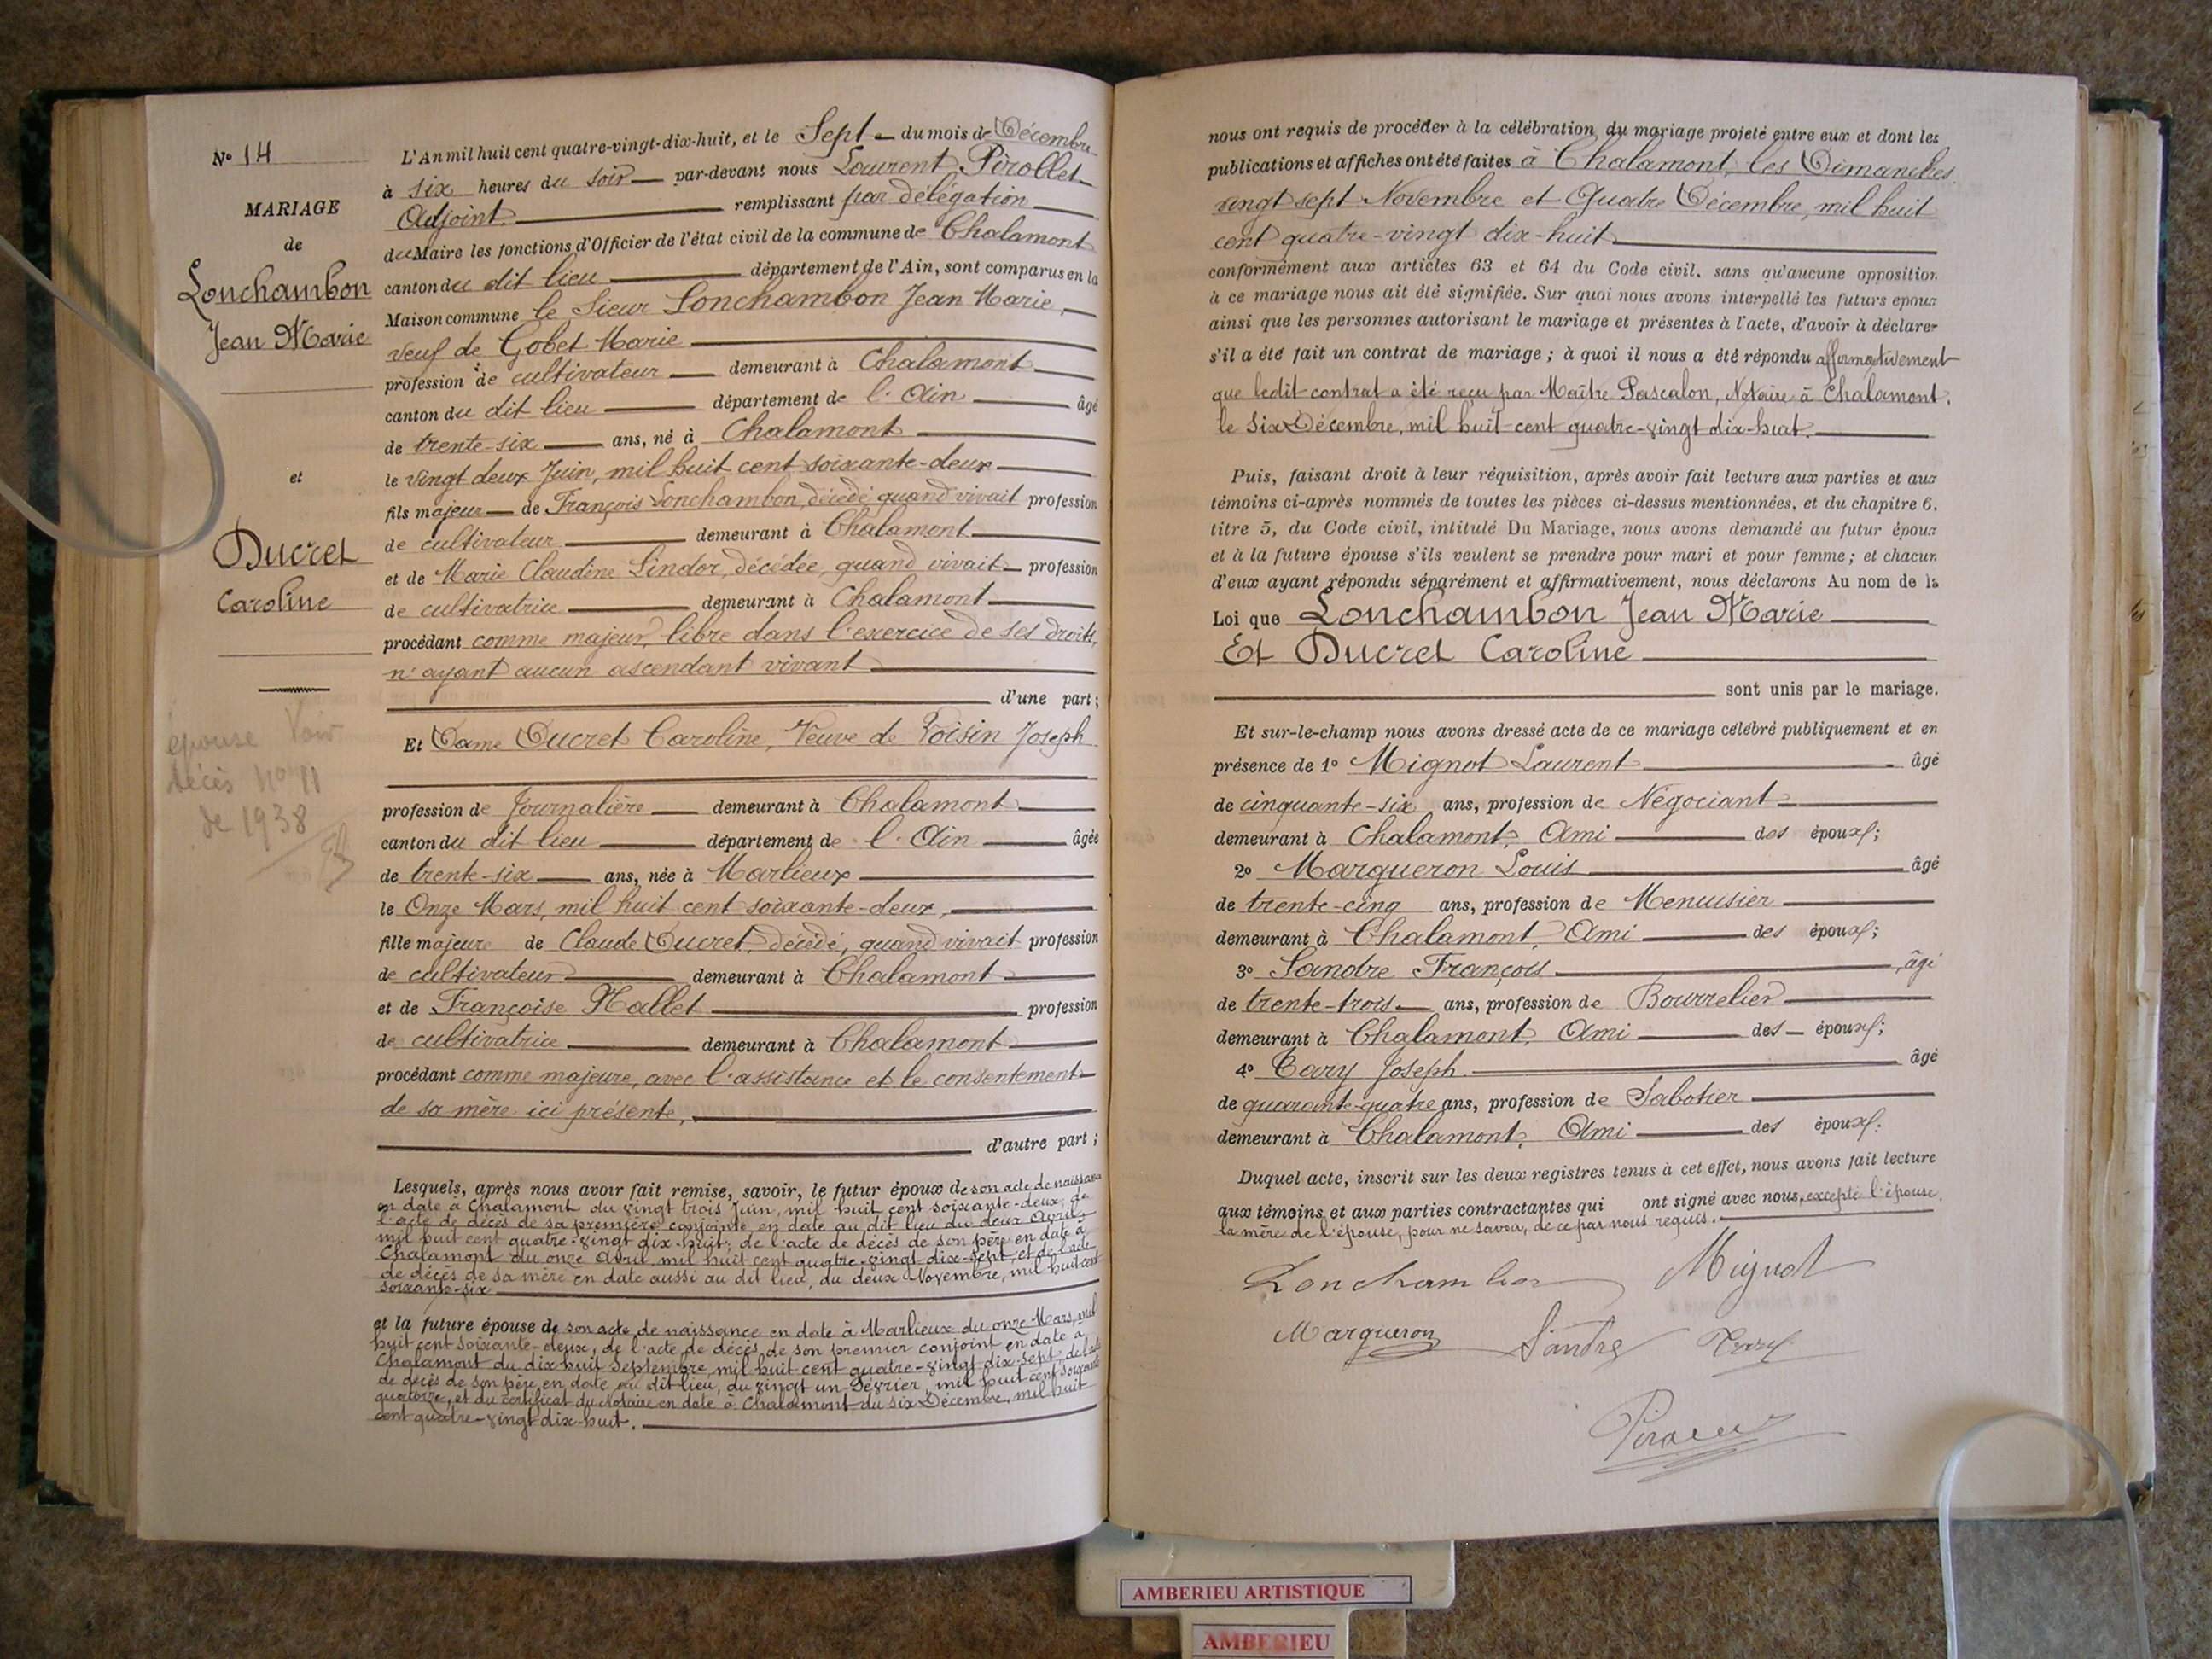 N° 14
MARIAGE
de
Lonchambon
Jean Marie
et
Ducret
Caroline
épouse Voir
décès n° 11
de 1938
L'An mil huit cent quatre-vingt-dix-huit, et le Sept du mois de Décembre
à six heures du soir par-devant nous Laurent Pérollet
Adjoint remplissant par délégation
du Maire les fonctions d'Officier de l'état civil de la commune de Chalamont
canton du dit lieu département de l'Ain, sont comparus en la
Maison commune le Sieur Lonchambon Jean Marie,
veuf de Gobet Marie
profession de cultivateur demeurant à Chalamont
canton du dit lieu département de l'Ain âgé
de trente-six ans, né à Chalamont
le vingt deux Juin, mil huit cent soixante-deux
fils majeur de François Lonchambon, décédé, quand vivait profession
de cultivateur demeurant à Chalamont
et de Marie Claudine Lindor, décédée, quand vivait profession
de cultivatrice demeurant à Chalamont
procédant comme majeur, libre dans l'exercice de ses droits,
n'ayant aucun ascendant vivant
d'une part;
Et Dame Ducret Caroline, Veuve de Voisin Joseph
profession de Journalière demeurant à Chalamont
canton du dit lieu département de l'Ain âgée
de trente-six ans, née à Marlieux
le Onze Mars, mil huit cent soixante-deux,
fille majeure de Claude Ducret, décédé, quand vivait profession
de cultivateur demeurant à Chalamont
et de Françoise Mallet profession
de cultivatrice demeurant à Chalamont
procédant comme majeure, avec l'assistance et le consentement
de sa mère ici présente,
d'autre part;
Lesquels, après nous avoir fait remise, savoir, le futur époux de son acte de naissance
en date à Chalamont du vingt trois Juin, mil huit cent soixante-deux; de
l'acte de décès de sa première conjointe en date au dit lieu du deux Avril,
mil huit cent quatre-vingt dix-huit; de l'acte de décès de son père en date à
Chalamont du onze Avril mil huit cent quatre-vingt-dix-sept, et de l'acte
de décès de sa mère en date aussi au dit lieu, du deux Novembre, mil huit cent
soixante-six
et la future épouse de son acte de naissance en date à Marlieux du onze Mars, mil
huit cent soixante-deux, de l'acte de décès de son premier conjoint en date à
Chalamont du dix huit Septembre, mil huit cent quatre-vingt dix-sept, de l'acte
de décès de son père, en date au dit lieu, du vingt un Février, mil huit cent soixante
quatorze, et du certificat du Notaire en date à Chalamont du six Décembre, mil huit
cent quatre-vingt dix-huit.
nous ont requis de procéder à la célébration du mariage projeté entre eux et dont les
publications et affiches ont été faites à Chalamont, les Dimanches
vingt sept Novembre et Quatre Décembre, mil huit
cent quatre-vingt dix-huit
conformément aux articles 63 et 64 du Code civil. sans qu'aucune opposition
à ce mariage nous ait été signifiée. Sur quoi nous avons interpellé les futurs epoux
ainsi que les personnes autorisant le mariage et présentes à l'acte, d'avoir à déclarer
s'il a été fait un contrat de mariage; à quoi il nous a été répondu affirmativement
que ledit contrat a été reçu par Maître Pascalon, Notaire à Chalamont,
le Six Décembre, mil huit-cent quatre-vingt dix-huit.
Puis, faisant droit à leur réquisition, après avoir fait lecture aux parties et aux
témoins ci-après nommés de toutes les pièces ci-dessus mentionnées, et du chapitre 6,
titre 5, du Code civil, intitulé Du Mariage, nous avons demandé au futur époux
et à la future épouse s'ils veulent se prendre pour mari et pour femme; et chacun
d'eux ayant répondu séparément et affirmativement, nous déclarons Au nom de la
Loi que Lonchambon Jean Marie
Et Ducret Caroline
sont unis par le mariage.
Et sur-le-champ nous avons dressé acte de ce mariage célébré publiquement et en
présence de 1° Mignot Laurent âgé
de cinquante-six ans, profession de Négociant
demeurant à Chalamont, Ami des époux;
2° Margueron Louis âgé
de trente-cinq ans, profession de Menuisier
demeurant à Chalamont, Ami des époux;
3° Sandre François âgé
de trente-trois ans, profession de Bourrelier
demeurant à Chalamont, Ami des époux;
4° Cary Joseph âgé
de quarante-quatre ans, profession de Sabotier
demeurant à Chalamont, Ami des époux.
Duquel acte, inscrit sur les deux registres tenus à cet effet, nous avons fait lecture
aux témoins et aux parties contractantes qui ont signé avec nous, excepté l'épouse,
la mère de l'épouse, pour ne savoir, de ce par nous requis.
Lonchambon Mignot
Margueron Sandre
AMBERIEU ARTISTIQUE
AMBERIEU